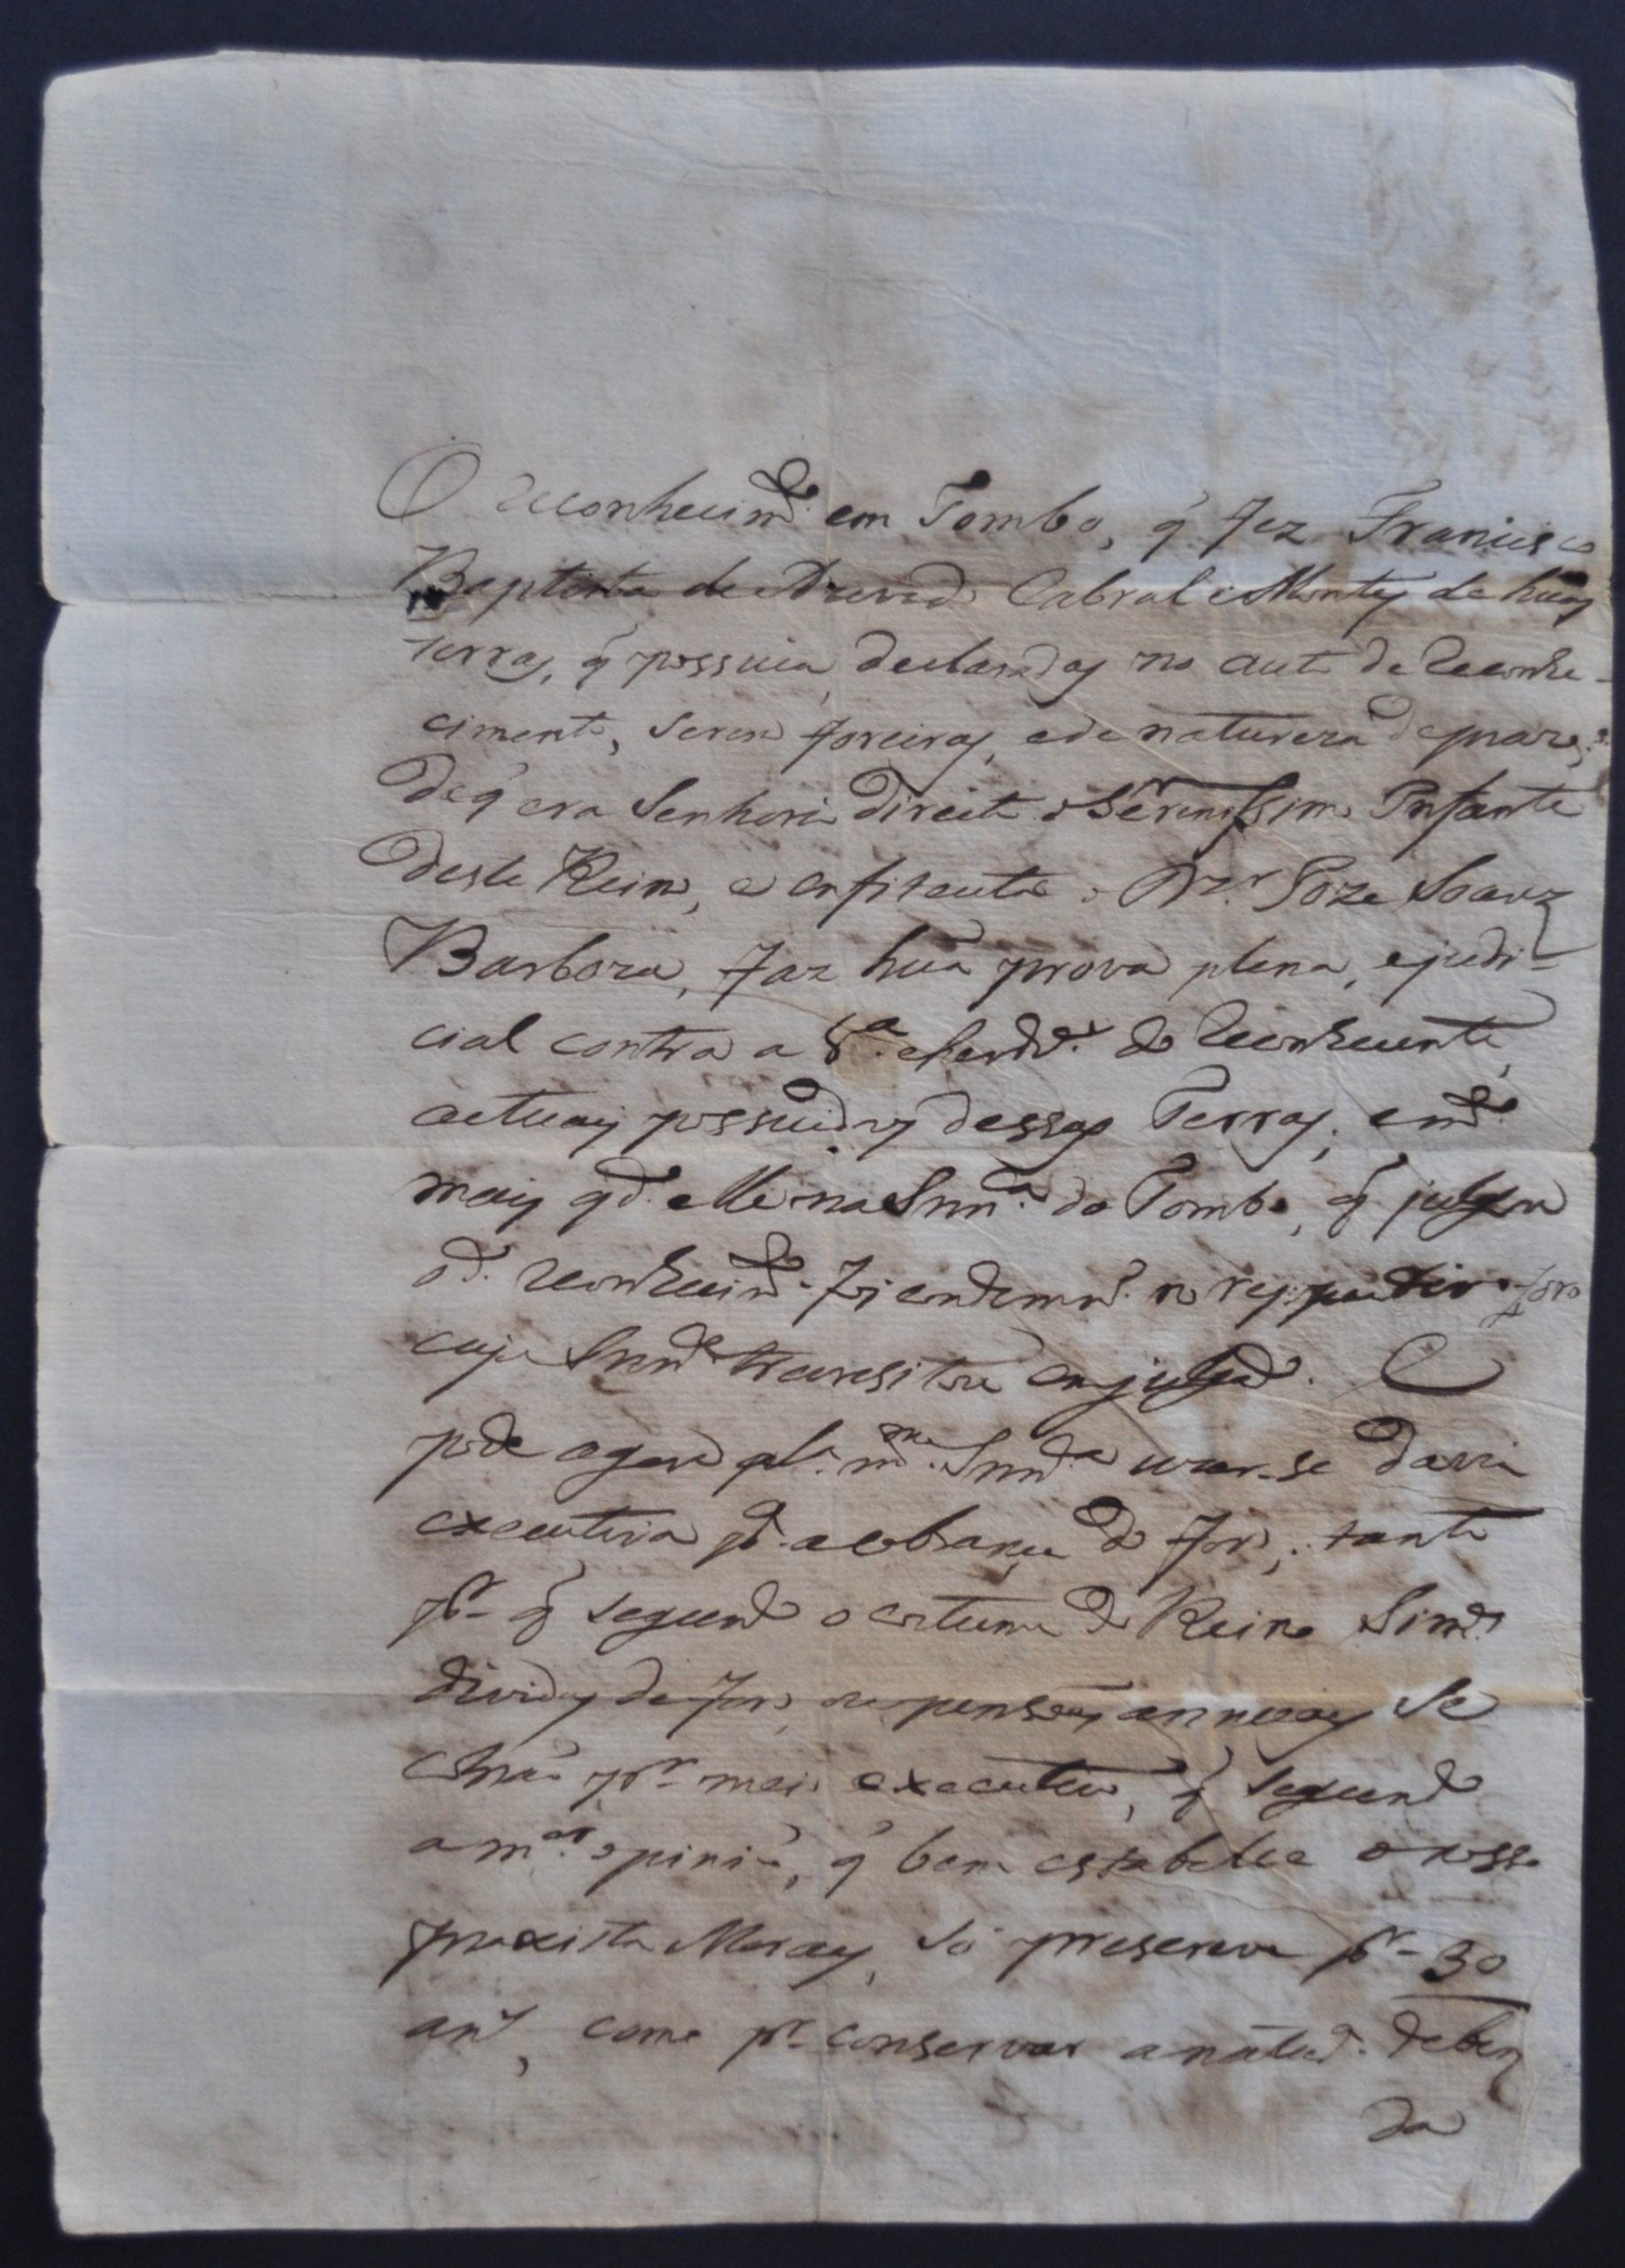 O reconhecim.to em Tombo, q̃ fez Francisco
Baptista de Azevedo Cabral e Montes de huas
terras, q̃ possuia, declaradas no auto de reconhe-
cimento, serem foreiras, e de natureza de prazo,
de q̃ era Senhorio directo o Serenissimo Infante
deste Reino, e enfiteuta o Dz.or Joze Soares
Barboza, faz hũa prova plena, e judi-
cial contra a V.a e herdr.os do reconhecente,
actuais possuidores dessas Terras; e m.to
mais qd.o elle na Snn.ça do Tombo, q̃ julgou
o d.o reconhecim.to foi condemn.do no foro
cuja Snn.ça transitou em julgado. E
pode agora pl.a m.ma Snn.ça uzar-se da via
executiva p.a a cobrança do foro; tanto
p.r q̃ segundo o costume do Reino Sim.es
dividas de foros, ou pensoẽs annuaes se
cobrão p.r meio executivo, q̃ segundo
a m.or opinião, q̃ bem estabelece o nosso
praxista Moraes, só prescreve p.r 30
ans, como p.a conservar a natud.e de bens
da